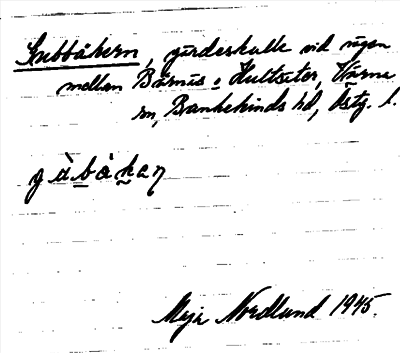 Gubbåkern, gärdeskulle vid vägen
mellan Bärnäs o Hultsäter, Värna
sn, Bankekinds hd, Östg. l.
Meja Nordlund 1945.